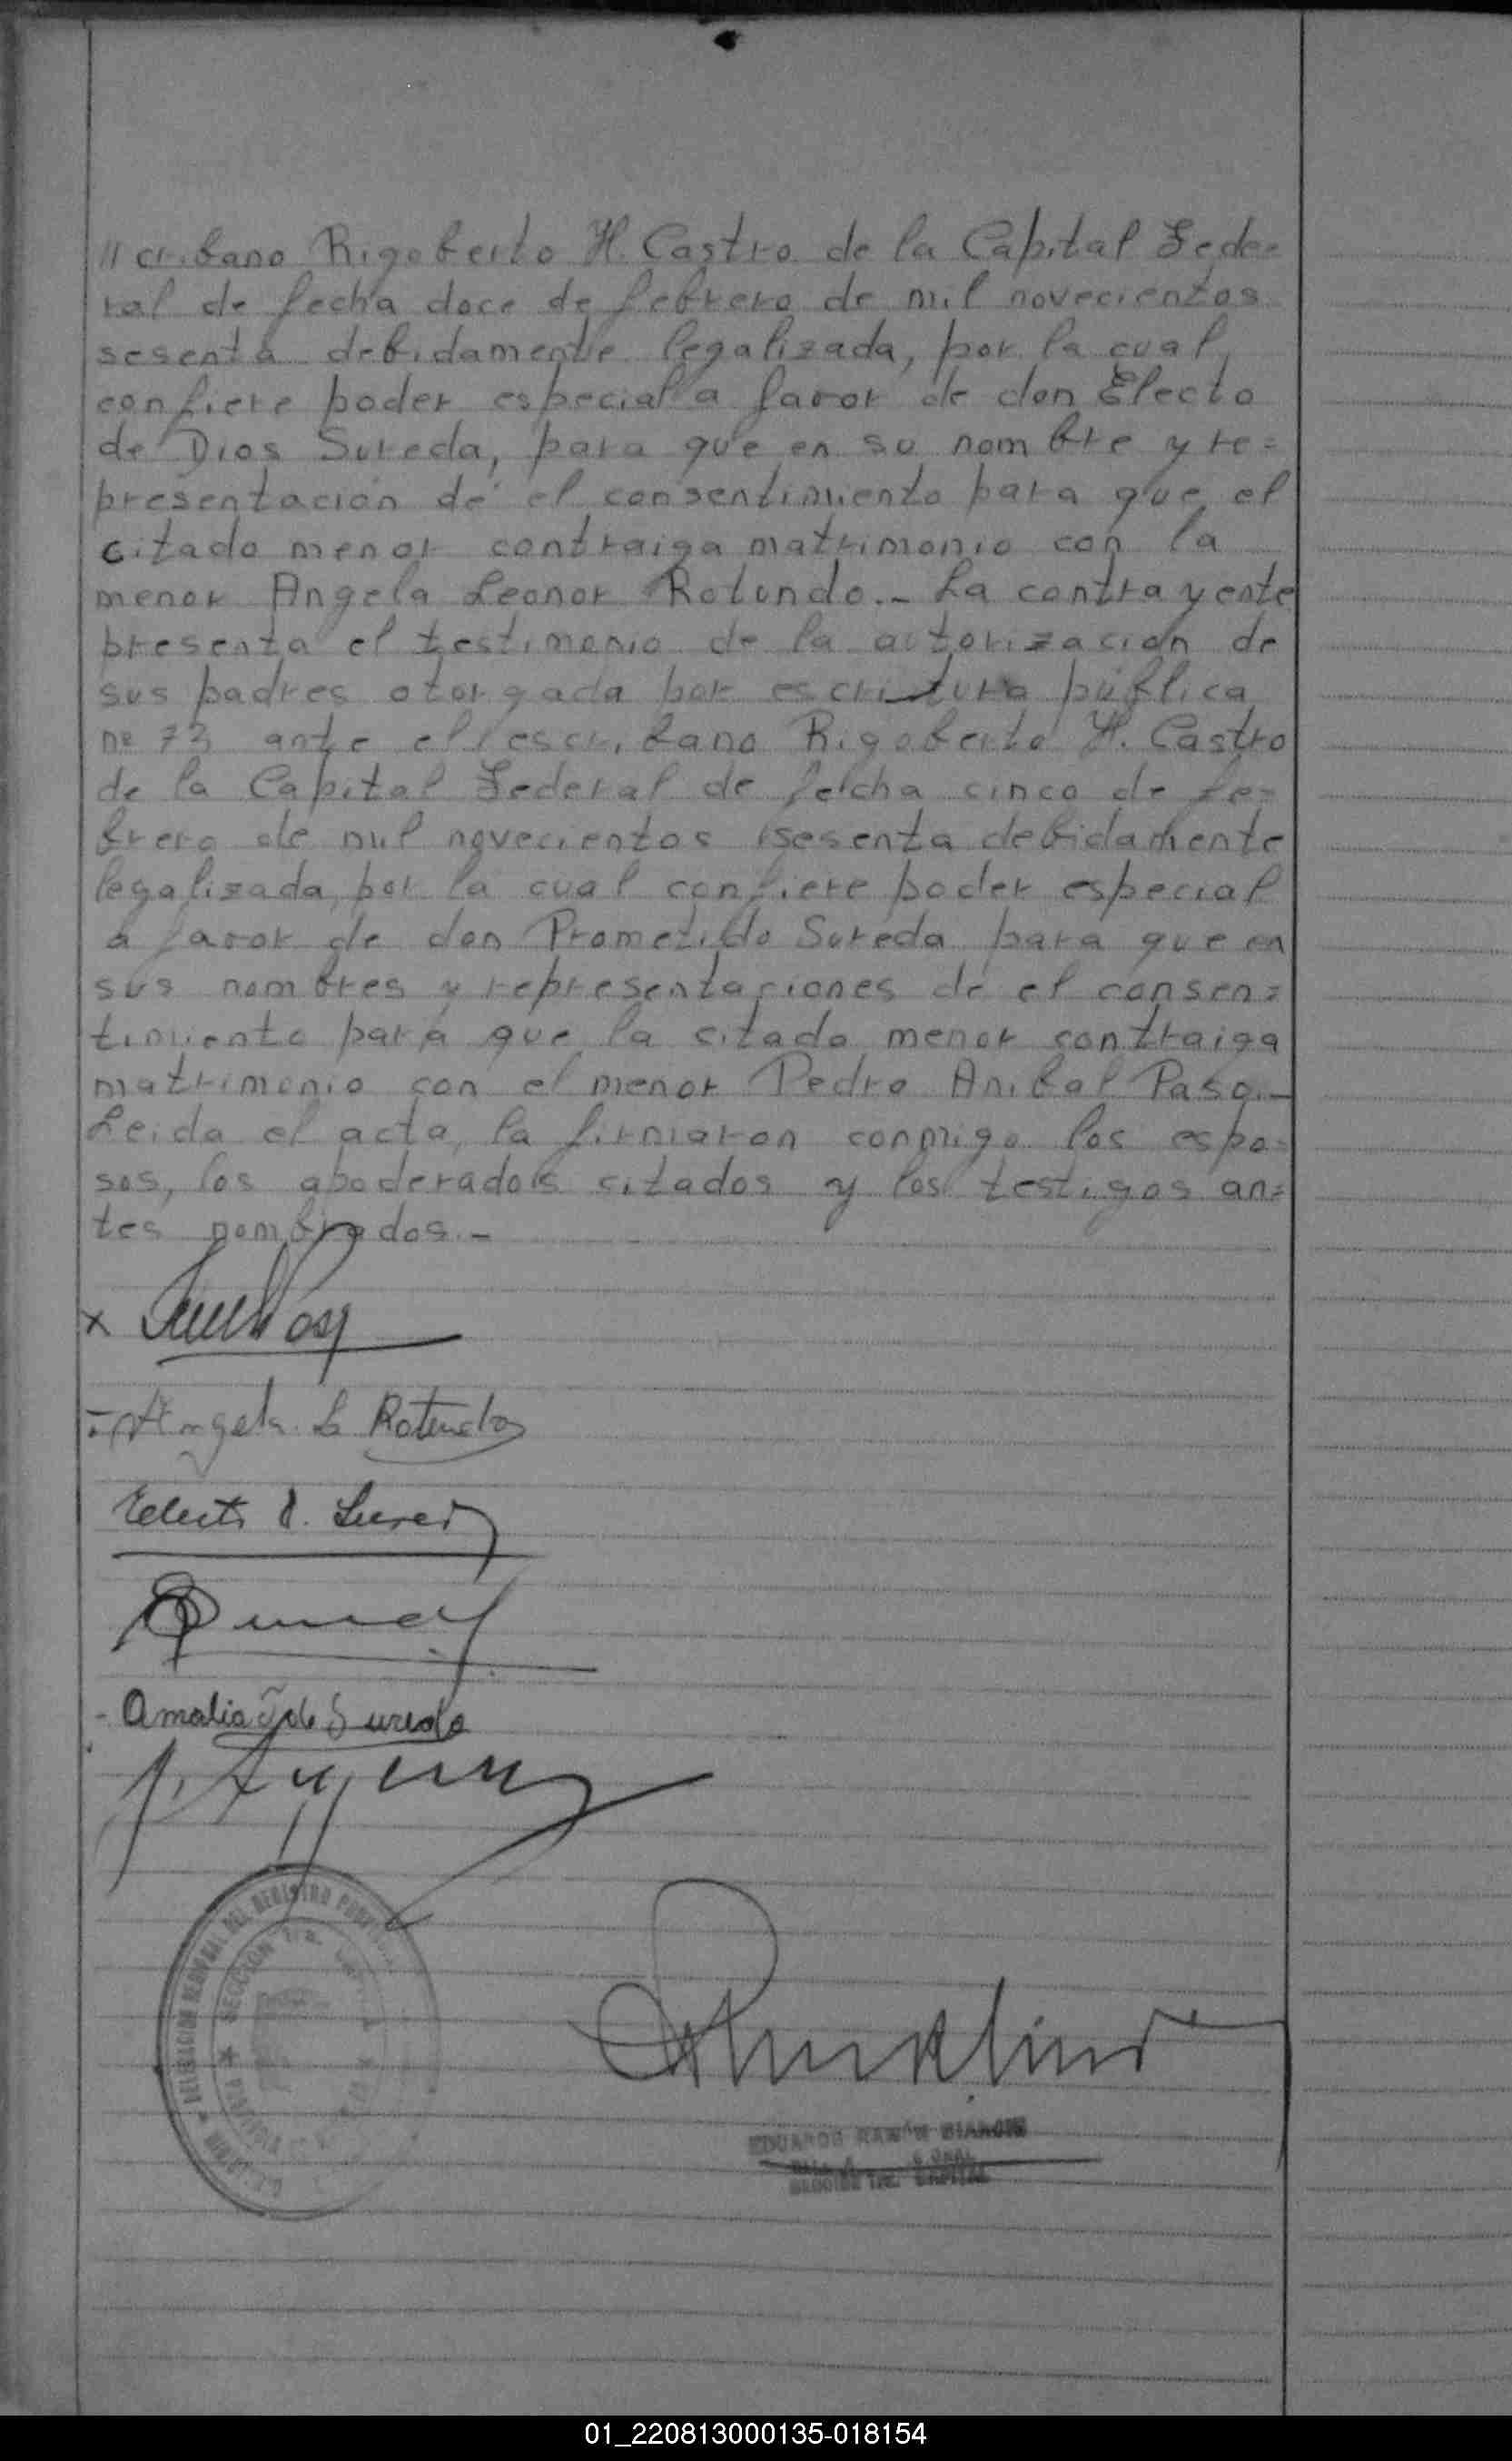 // cribano Rigoberto H. Castro de la Capital Fede=
ral de fecha doce de febrero de mil novecientos
sesenta debidamente legalizada, por la cual
confiere poder especial a favor de don Electo
de Dios Sureda, para que en su nombre y re=
presentación dé el consentimiento para que el
citado menor contraiga matrimonio con la
menor Angela Leonor Rotundo._ La contrayente
presenta el testimonio de la autorización de
sus padres otorgada por escritura pública
nº 73 ante el escribano Rigoberto H. Castro
de la Capital Federal de fecha cinco de fe=
brero de mil novecientos sesenta debidamente
legalizada, por la cual confiere poder especial
a favor de don Prometido Sureda para que en
sus nombres y representaciones dé el consen=
timiento para que la citada menor contraiga
matrimonio con el menor Pedro Anibal Paso._
Leida el acta, la firmaron conmigo los espo=
sos, los apoderados citados y los testigos an=
tes nombrados._
x
Angela L Rotundo
Electo d. Sureda
Amalia de Sureda
DELEGACION REGIONAL DEL REGISTRO
SECCION
EDUARDO RAMÓN BIANCHI
CAPITAL
01_220813000135-018154